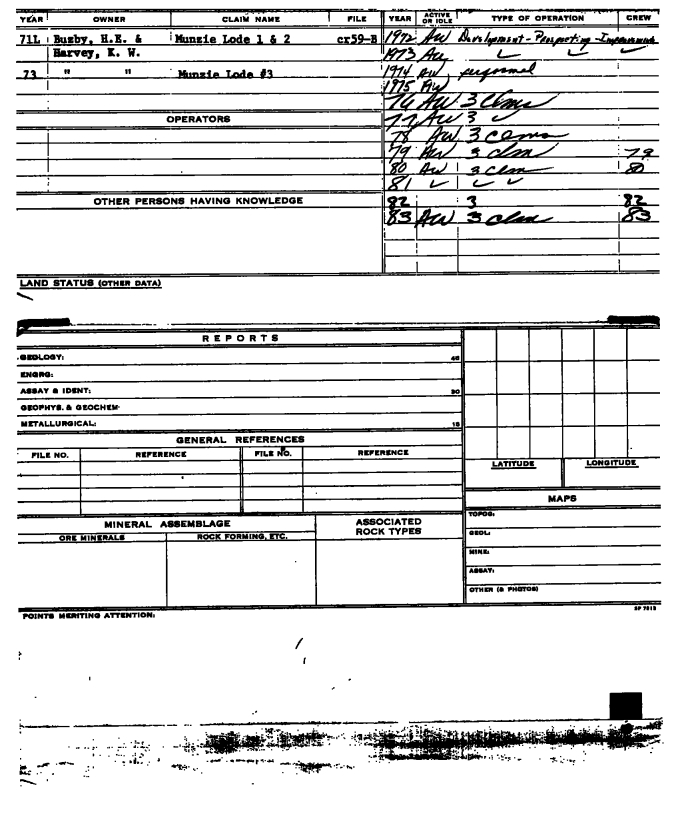 YEAR OWNER CLAIM NAME FILE YEAR ACTIVE OR IDLE TYPE OF OPERATION CREW
71L Buzby, H.E. & Munzie Lode 1 & 2 cr59-B 1972 AW Development - Prospecting - Improvement
Harvey, K. W. 1973 AW ✓ ✓ ✓
73 " " Munzie Lode #3 1974 AW personnel
1975 AW
76 AW 3 clms
OPERATORS 77 AW 3 ✓
78 AW 3 clms
79 AW 3 clm 79
80 AW 3 clm 80
81 ✓ ✓ ✓
OTHER PERSONS HAVING KNOWLEDGE 82 3 82
83 AW 3 clm 83
LAND STATUS (OTHER DATA)
REPORTS
GEOLOGY: 45
ENGRG:
ASSAY & IDENT: 30
GEOPHYS. & GEOCHEM
METALLURGICAL: 15
GENERAL REFERENCES
FILE NO. REFERENCE FILE NO. REFERENCE
LATITUDE LONGITUDE
MAPS
TOPOG:
MINERAL ASSEMBLAGE ASSOCIATED ROCK TYPES
ORE MINERALS ROCK FORMING, ETC.
GEOL:
MINE:
ASSAY:
OTHER (& PHOTOS)
POINTS MERITING ATTENTION: SP 7313